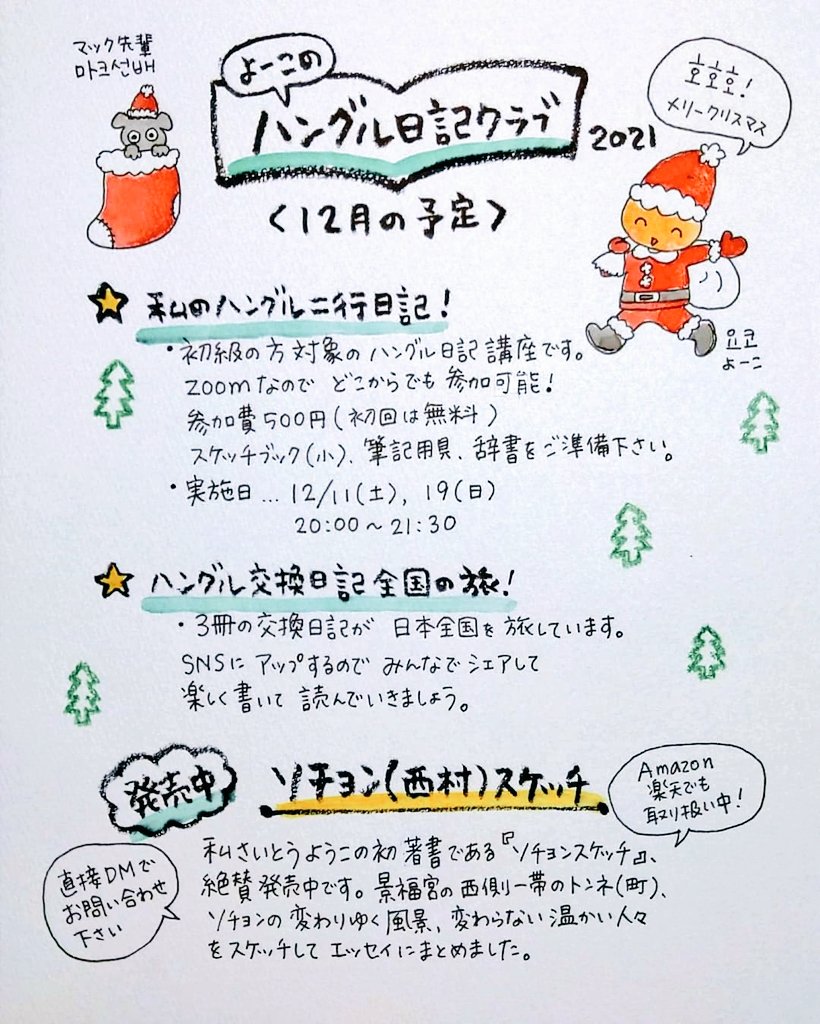 マック先輩
마크선배
よーこの
ハングル日記クラブ
2021
호호호!
メリークリスマス
〈12月の予定〉
요코
よーこ
私のハングル二行日記!
・初級の方対象のハングル日記講座です。
zoomなので どこからでも参加可能!
参加費500円(初回は無料)
スケッチブック(小)、筆記用具、辞書をご準備下さい。
・実施日…12/11(土), 19(日)
20:00〜21:30
ハングル交換日記全国の旅!
・3冊の交換日記が 日本全国を旅しています。
SNSに アップするので みんなでシェアして
楽しく書いて 読んでいきましょう。
発売中
ソチョン(西村)スケッチ
Amazon
楽天でも
取り扱い中!
直接DMで
お問い合わせ
下さい
私さいとうようこの初著書である『ソチョンスケッチ』、
絶賛発売中です。景福宮の西側一帯のトンネ(町)、
ソチョンの変わりゆく風景、変わらない温かい人々
をスケッチして エッセイにまとめました。